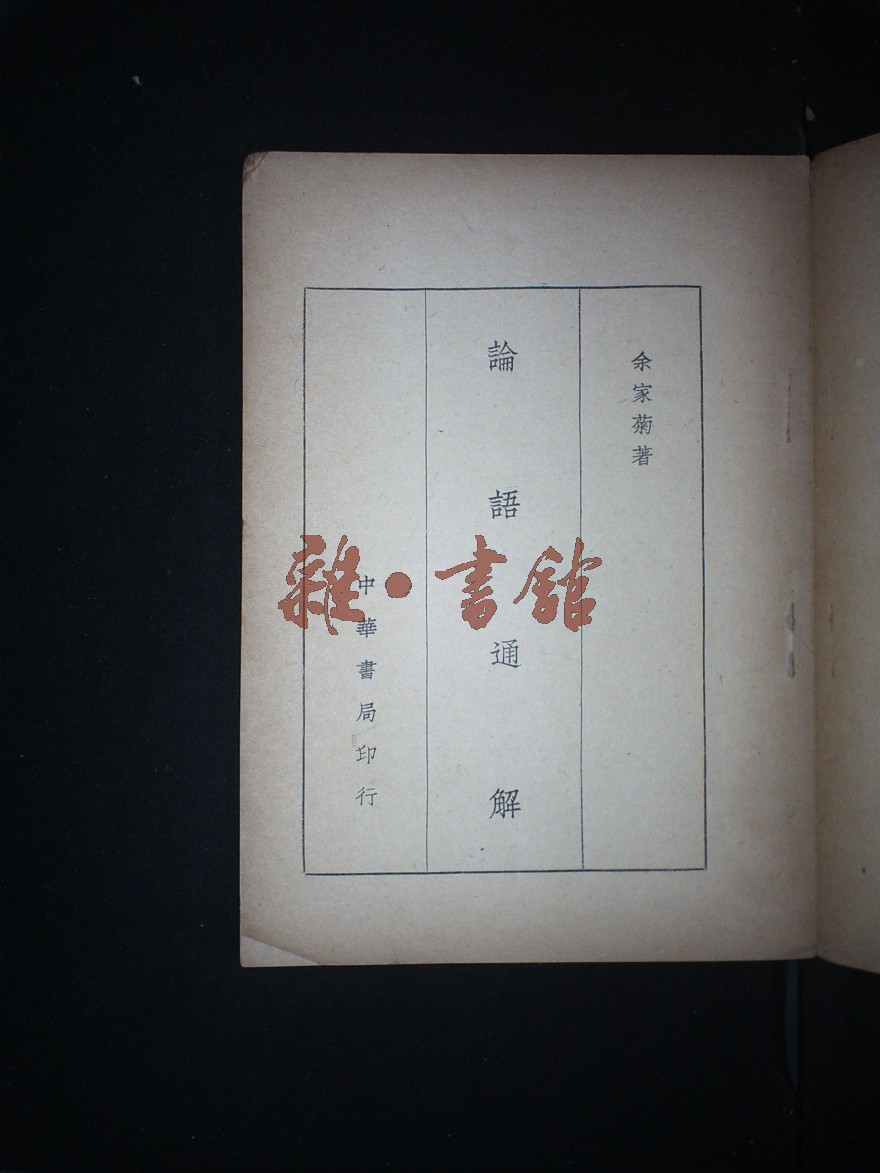 余家菊著
論語通解
中華書局印行
雜·書舘